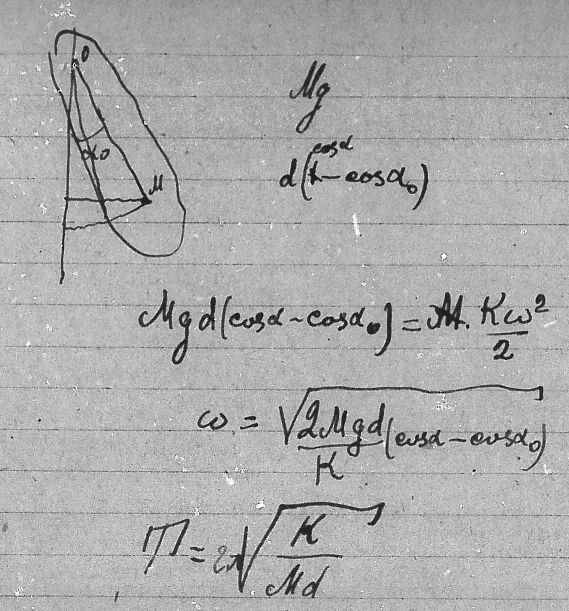 O
α₀
M
Mg
cosα
d(1-cosα₀)
Mgd(cosα-cosα₀)=M.Kω²/2
ω=√(2Mgd/K (cosα-cosα₀))
T=2π√(K/Md)